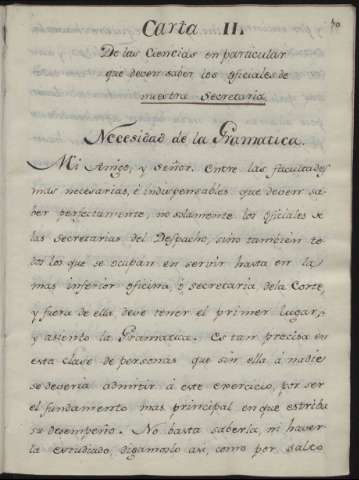 Carta II.
De las Ciencias en particular
que deven saber los oficiales de
nuestra Secretaria
Necesidad de la Gramatica.
Mi Amigo, y señor. Entre las facultades
mas necesarias, é indispensables que deven sa-
ber perfectamente, no solamente los oficiales de
las Secretarias del Despacho, sino tambien to-
dos los que se ocupan en servir hasta en la
mas inferior oficina, ó secretaria de la Corte,
y fuera de ella, deve tener el primer lugar,
y asiento la Gramatica. Es tan precisa en
esta clase de personas que sin ella á nadie
se deveria admitir á este exercicio, por ser
el fundamento mas principal en que estriba
su desempeño. No basta saberla, ni haver-
la estudiado, digamoslo asi, como por salto